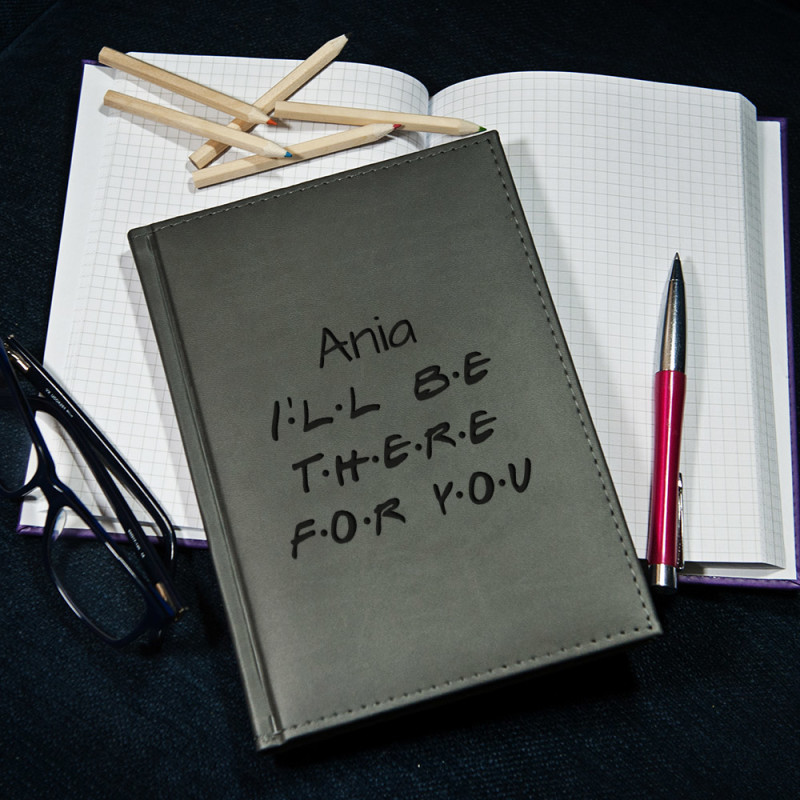 Ania
I'·L·L B·E
T·H·E·R·E
F·O·R Y·O·U